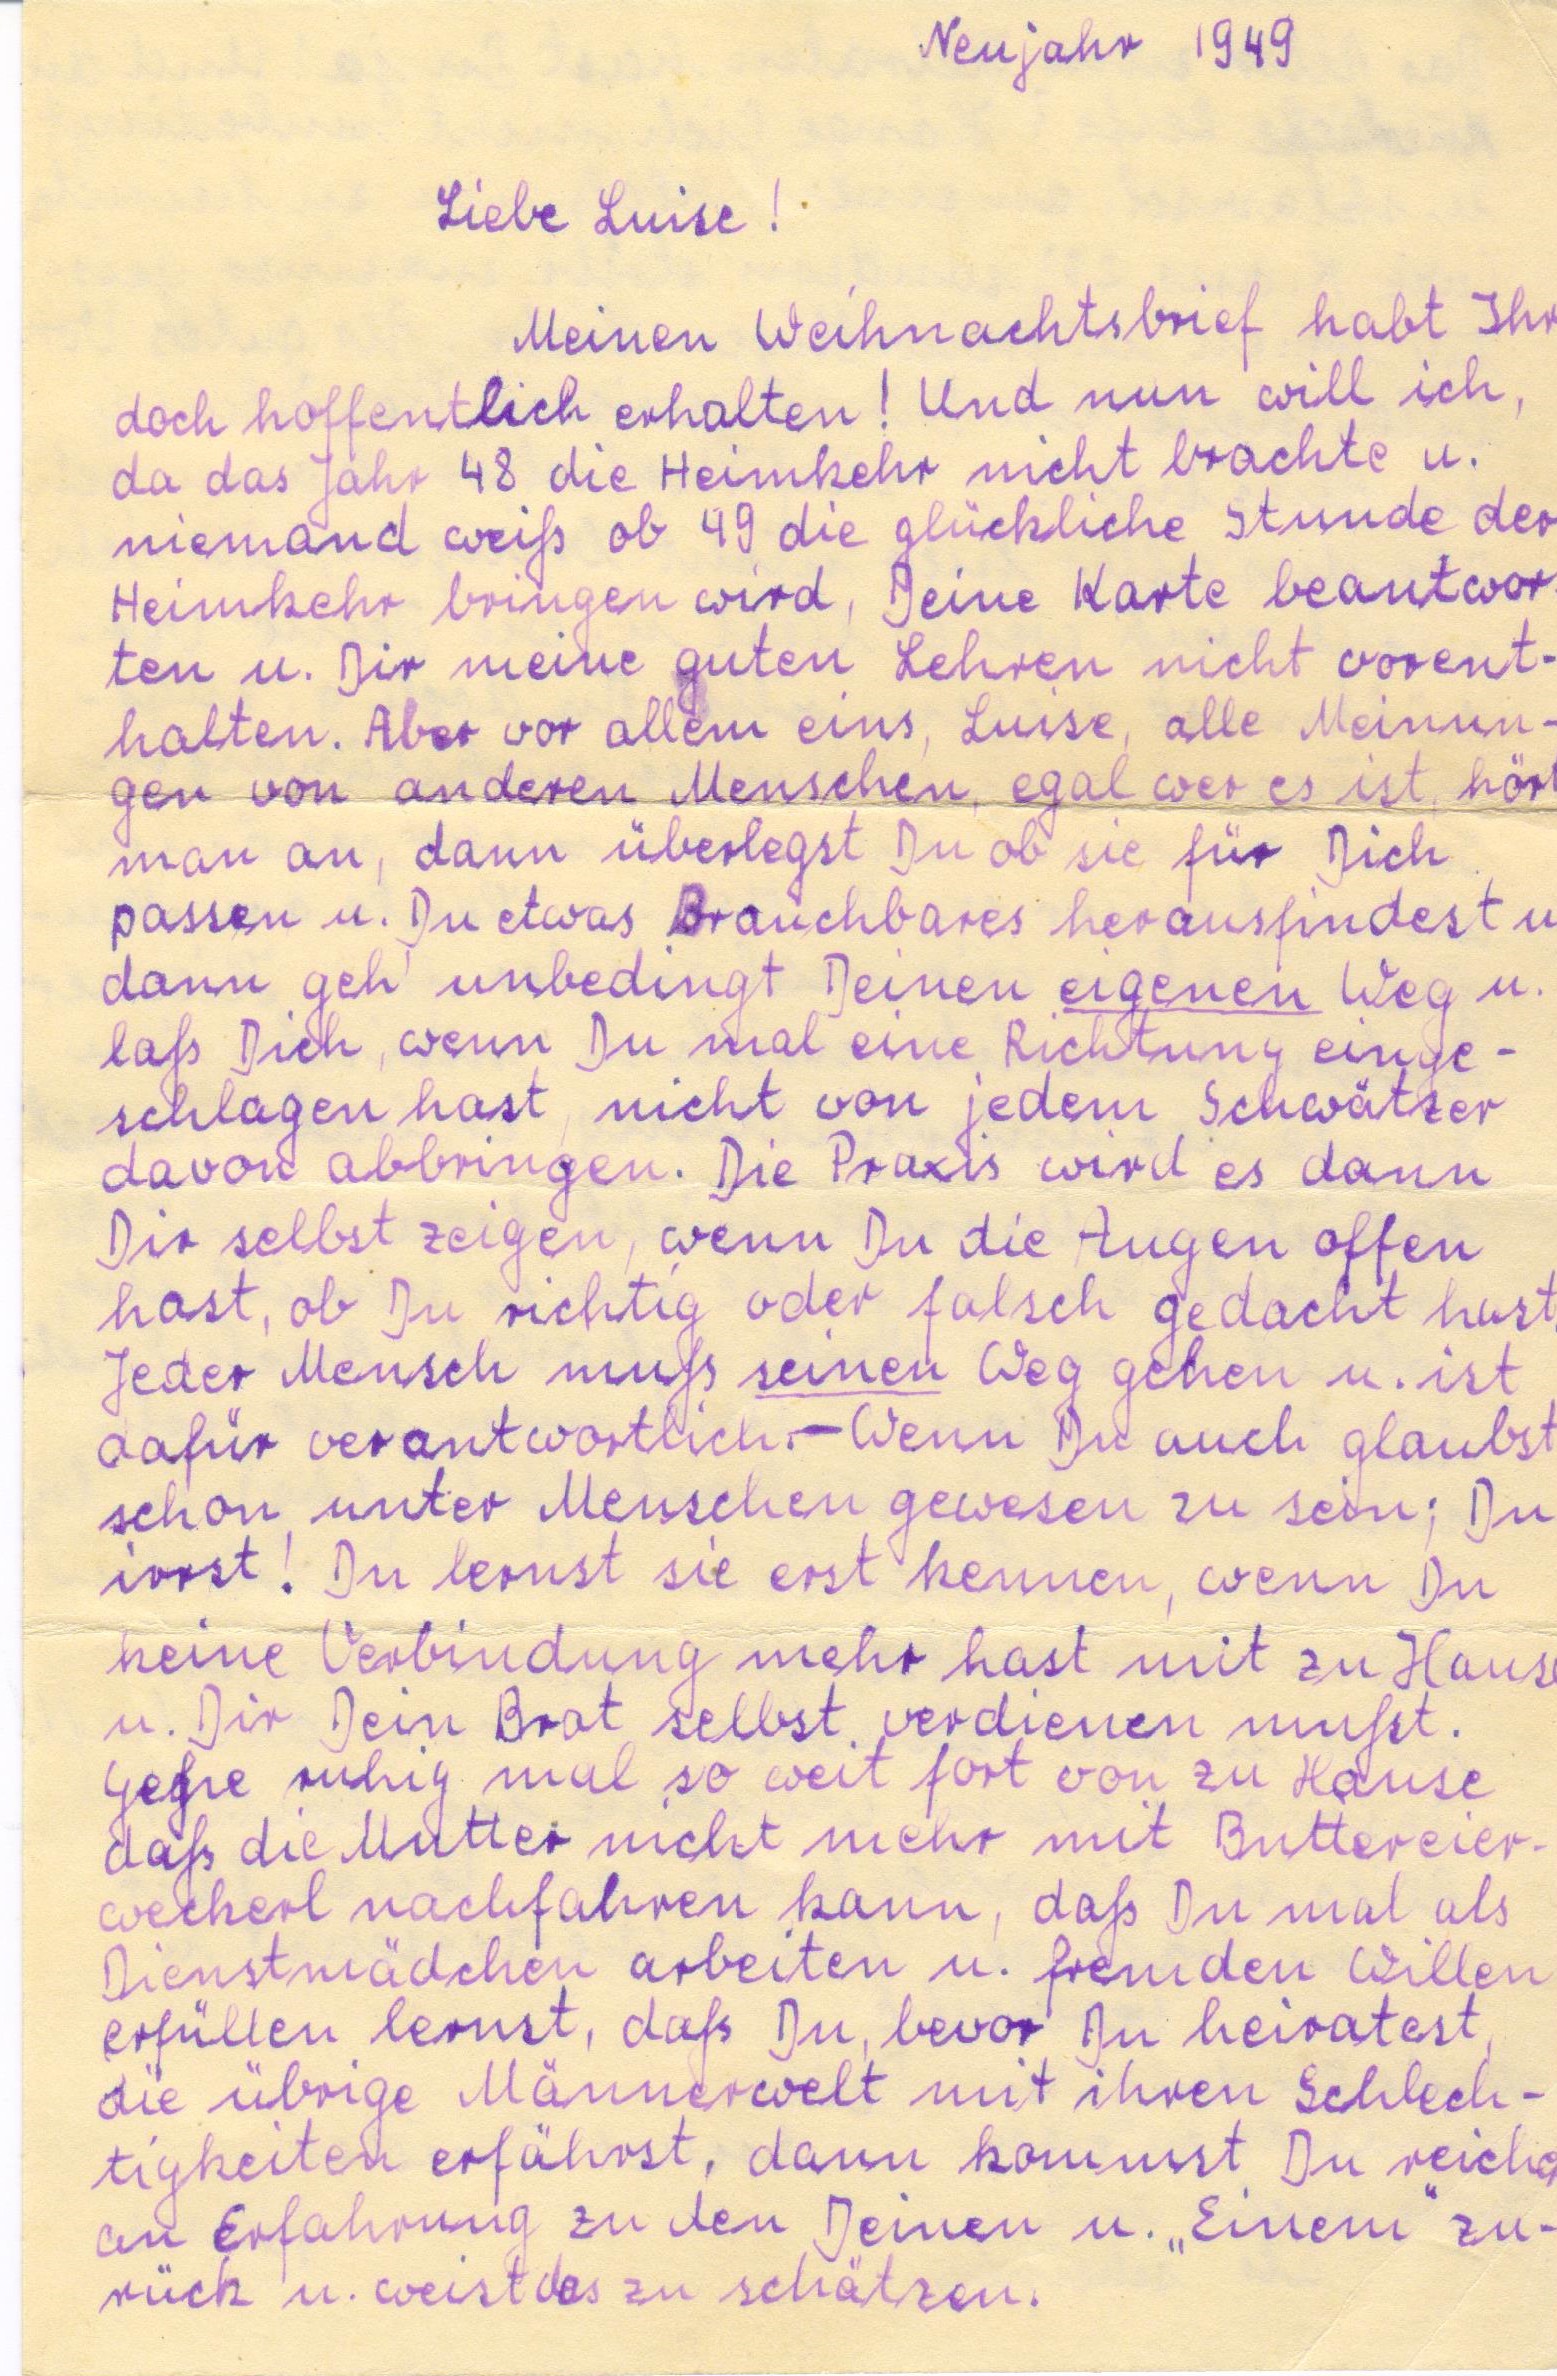 Neujahr 1949
Liebe Luise!
Meinen Weihnachtsbrief habt Ihr
doch hoffentlich erhalten! Und nun will ich,
da das Jahr 48 die Heimkehr nicht brachte u.
niemand weiß ob 49 die glückliche Stunde der
Heimkehr bringen wird, Deine Karte beantwor-
ten u. Dir meine guten Lehren nicht vorent-
halten. Aber vor allem eins, Luise, alle Meinun-
gen von anderen Menschen, egal wer es ist, hört
man an, dann überlegst Du ob sie für Dich
passen u. Du etwas Brauchbares herausfindest u
dann geh' unbedingt Deinen eigenen Weg u.
laß Dich, wenn Du mal eine Richtung einge-
schlagen hast, nicht von jedem Schwätzer
davon abbringen. Die Praxis wird es dann
Dir selbst zeigen, wenn Du die Augen offen
hast, ob Du richtig oder falsch gedacht hast.
Jeder Mensch muß seinen Weg gehen u. ist
dafür verantwortlich.— Wenn Du auch glaubst
schon unter Menschen gewesen zu sein; Du
irrst! Du lernst sie erst kennen, wenn Du
keine Verbindung mehr hast mit zu Hause
u. Dir Dein Brot selbst verdienen mußt.
Gehe ruhig mal so weit fort von zu Hause
daß die Mutter nicht mehr mit Buttereier-
weckerl nachfahren kann, daß Du mal als
Dienstmädchen arbeiten u. fremden Willen
erfüllen lernst, daß Du, bevor Du heiratest,
die übrige Männerwelt mit ihren Schlech-
tigkeiten erfährst, dann kommst Du reicher
an Erfahrung zu den Deinen u. „Einem" zu-
rück u. weist des zu schätzen.